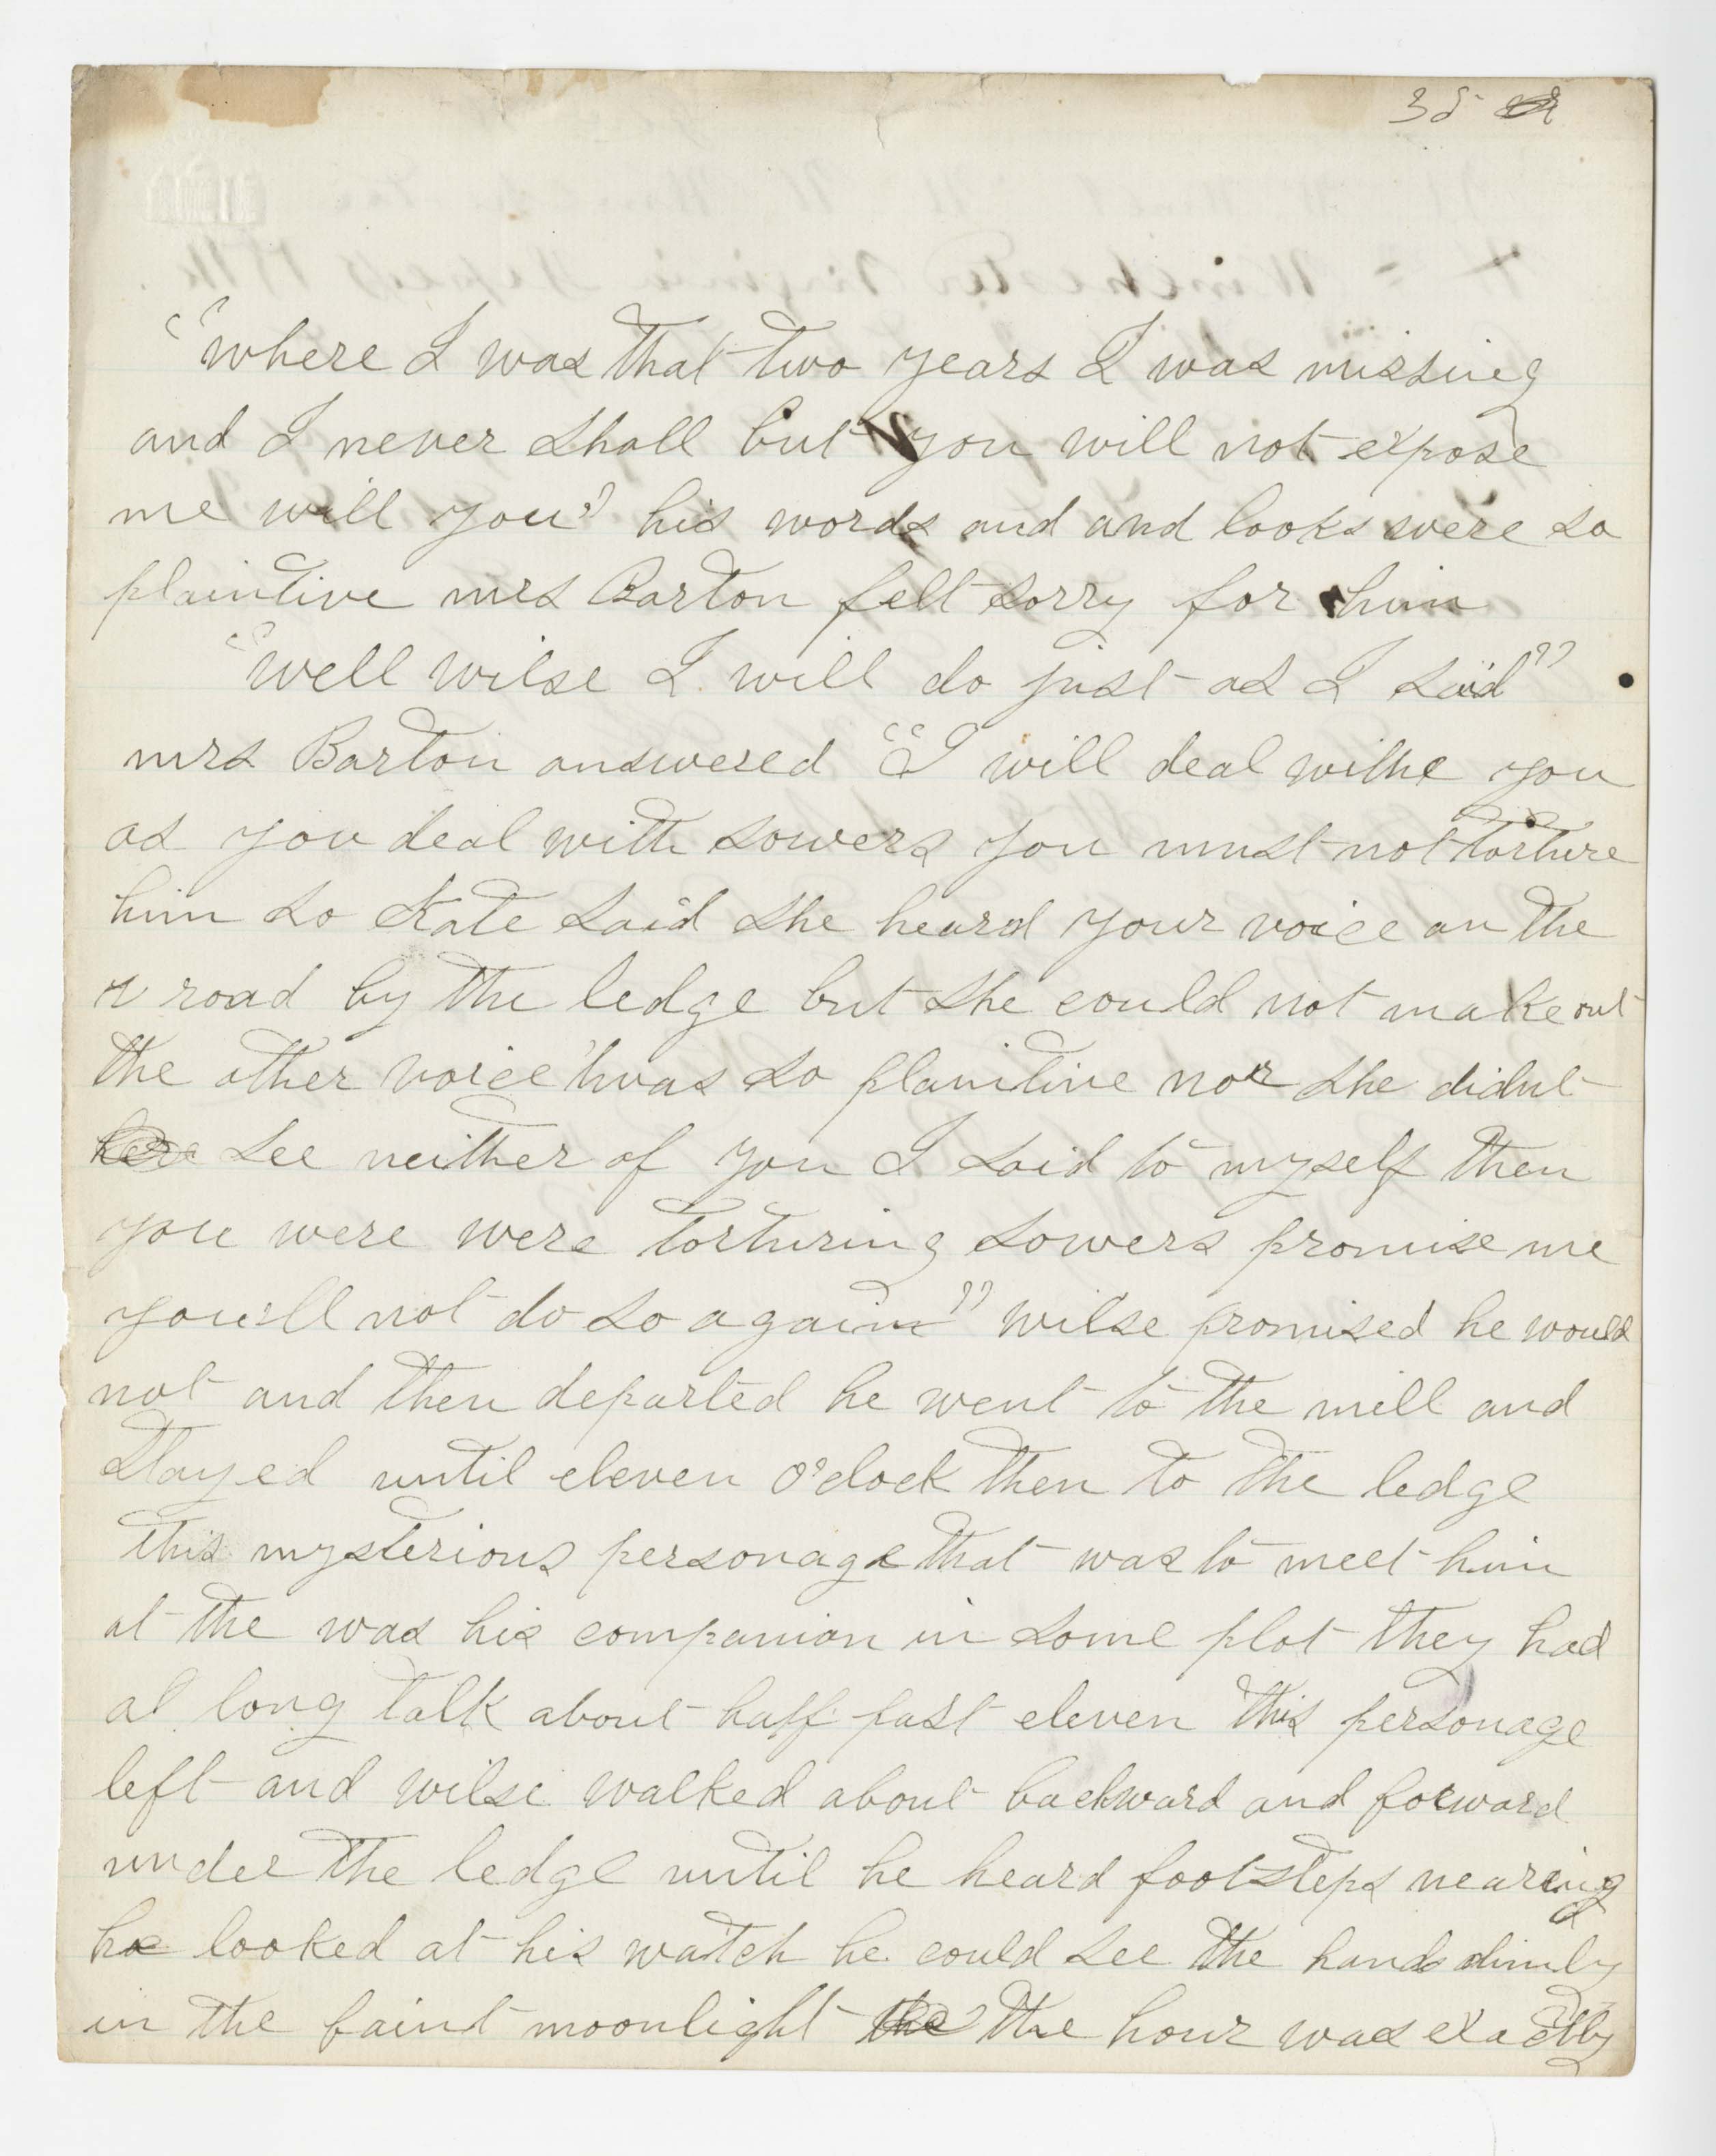 35
"where I was that two years I was missing
and I never shall but you will not expose
me will you" his words and and looks were so
plaintive mrs Barton felt sorry for him
"well wilse I will do just as I said"
mrs Barton answered "I will deal withe you
as you deal with sowers you must not torture
him so Kate said she heard your voice on the
r road by the ledge but she could not make out
the other voice 'twas so plaintive nor she didnt
see neither of you I said to myself then
you were were torturing sowers promise me
you'll not do so again" wilse promised he would
not and then departed he went to the mill and
stayed until eleven o'clock then to the ledge
this mysterious personage that was to meet him
at the was his companion in some plot they had
a long talk about half past eleven this personage
left and wilse walked about backward and forward
under the ledge until he heard footsteps nearing
he looked at his watch he could see the hands dimly
in the faint moonlight the the hour was exactly